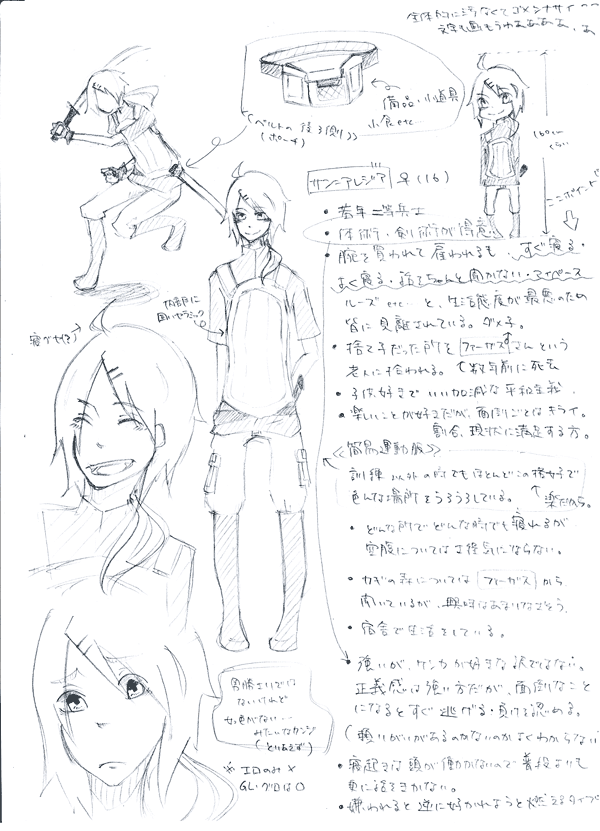 全体的に汚なくてゴメンナサイ〜〜
文字も画もうわあああああ
備品・小道具
小食etc…
(ベルトの後ろ側))
(ポーチ)
160cm
くらい
ここポイント!
サン=アレジア ♀(16)
・若年二等兵士
・体術・剣術が得意。
・腕を買われて雇われるも、すぐ寝る・
よく寝る・話をちゃんと聞かない・マイペース
ルーズetc…と、生活態度が最悪のため
皆に見離されている。ダメ子。
・捨て子だった所をファーガスさんという
老人に拾われる。↑数年前に死去
・子供好きでいい加減な平和主義。
・楽しいことが好きだが、面倒ごとはキライ。
割合、現状に満足する方。
内部に
固いセラミック
寝ぐせ(?)
《簡易運動服》
訓練以外の時でもほとんどこの格好で
色んな場所をうろうろしている。↑楽だから。
・どんな所でどんな時でも寝れるが
空腹についてはさほど気にならない。
・カギの森についてはファーガスから
聞いているが、興味はあまりなさそう。
・宿舎で生活をしている。
・強いが、ケンカが好きな訳ではない。
正義感は強い方だが、面倒なこと
になるとすぐ逃げる・負けを認める。
(頭いがいがあるのかないのかよくわからない
・寝起きは頭が働かないので普段よりも
更に話をきかない。
・嫌われると逆に好かれようと燃えるタイプ
男勝りでは
ないけれど
女色がない…
みたいなカンジ
(とりあえず)
※エロのみ×
GL・グロは○